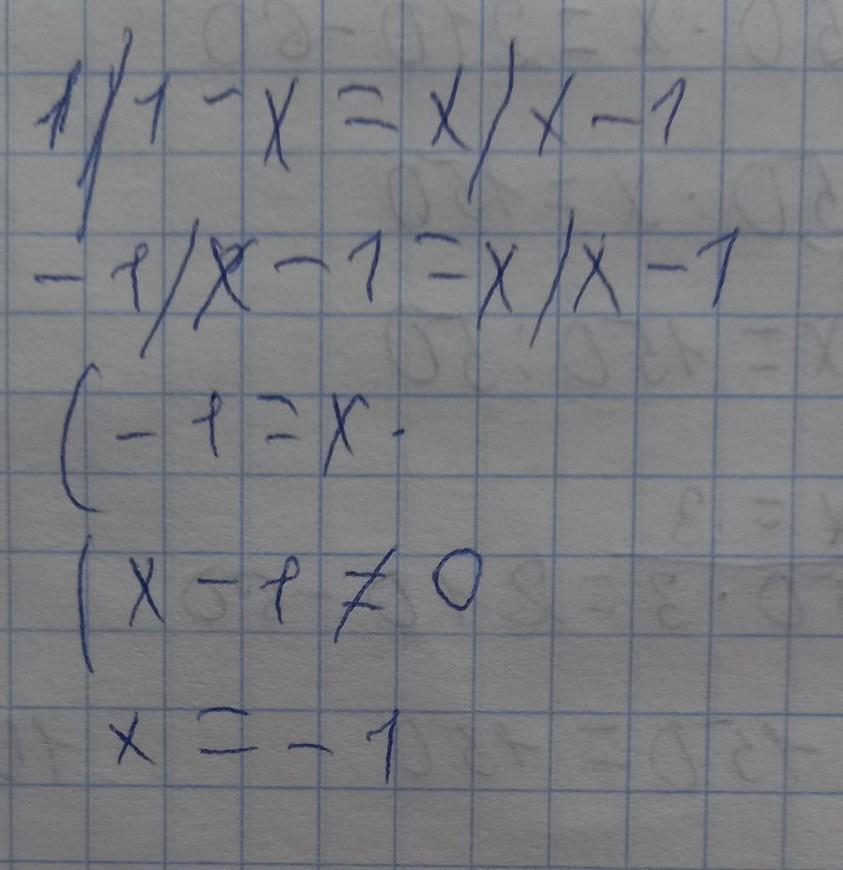 1/1-x=x/x-1
-1/x-1=x/x-1
(-1=x.
(x-1≠0
x=-1